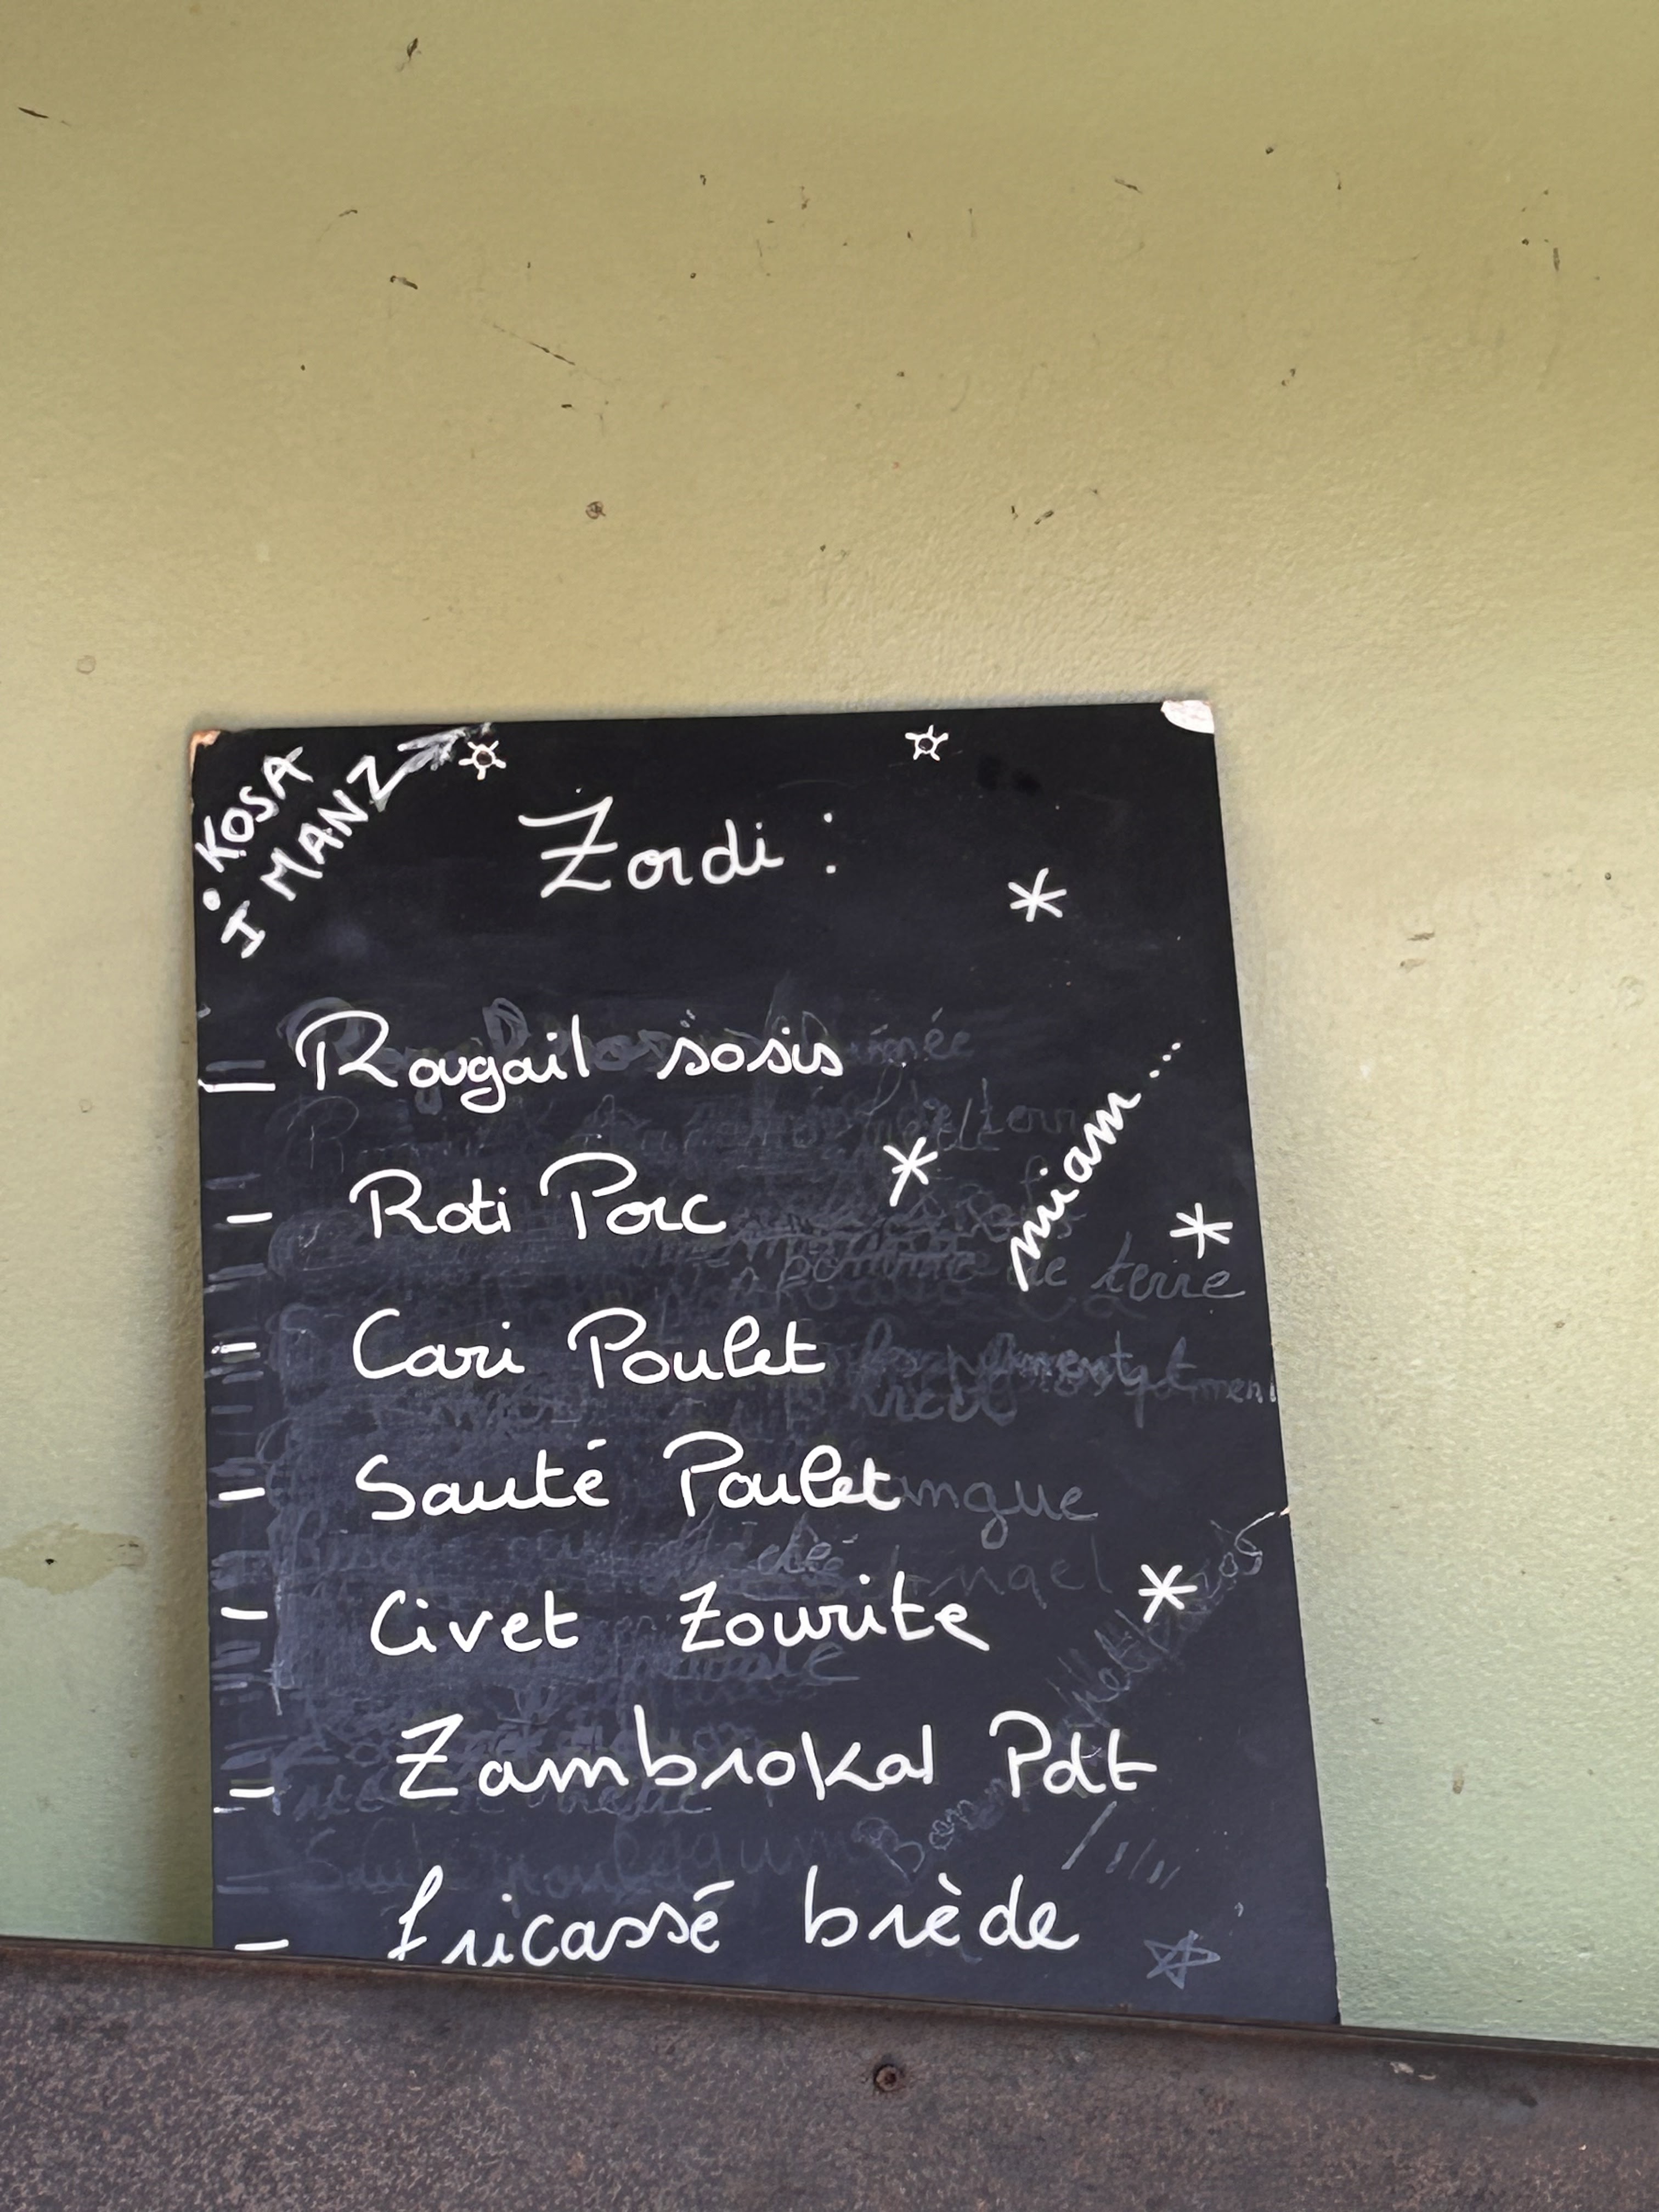 KOSA
I MANZ
Zordi :
Rougail sosis
Roti Porc
miam...
Cari Poulet
Sauté Poulet
Civet Zourite
Zambrokal Pdt
fricassé brède